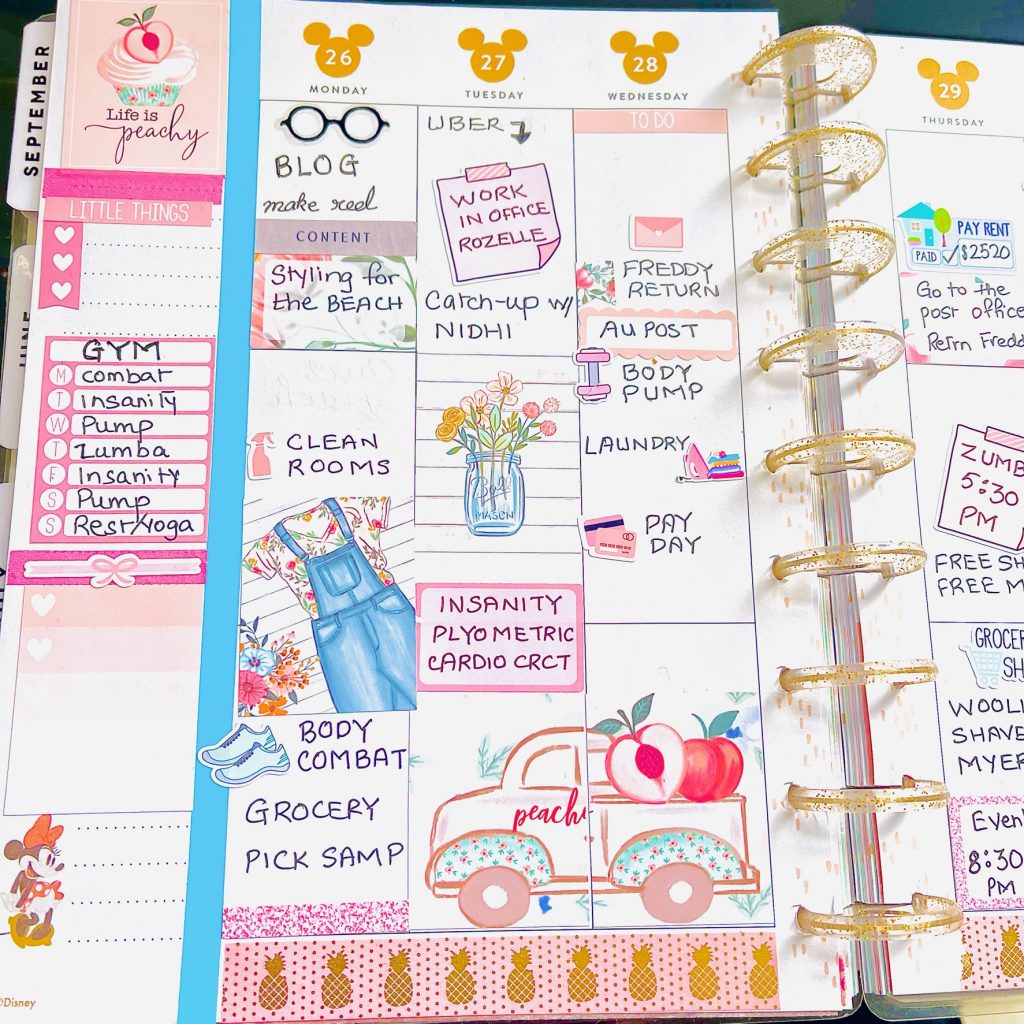 SEPTEMBER
JUNE
Life is
peachy
LITTLE THINGS
GYM
M combat
T Insanity
W Pump
T Zumba
F Insanity
S Pump
S Rest/Yoga
©Disney
26
MONDAY
BLOG
make reel
CONTENT
Styling for
the BEACH
CLEAN
ROOMS
BODY
COMBAT
GROCERY
PICK SAMP
27
TUESDAY
UBER
WORK
IN OFFICE
ROZELLE
Catch-up w/
NIDHI
Ball
MASON
INSANITY
PLYOMETRIC
CARDIO CRCT
peachy
28
WEDNESDAY
TO DO
FREDDY
RETURN
AU POST
BODY
PUMP
LAUNDRY
PAY
DAY
29
THURSDAY
PAY RENT
PAID $2520
Go to the
post office
Retrn Fredd
ZUMB
5:30
PM
FREE SH
FREE M
GROCER
SH
WOOLI
SHAVE
MYER
Even
8:30
PM